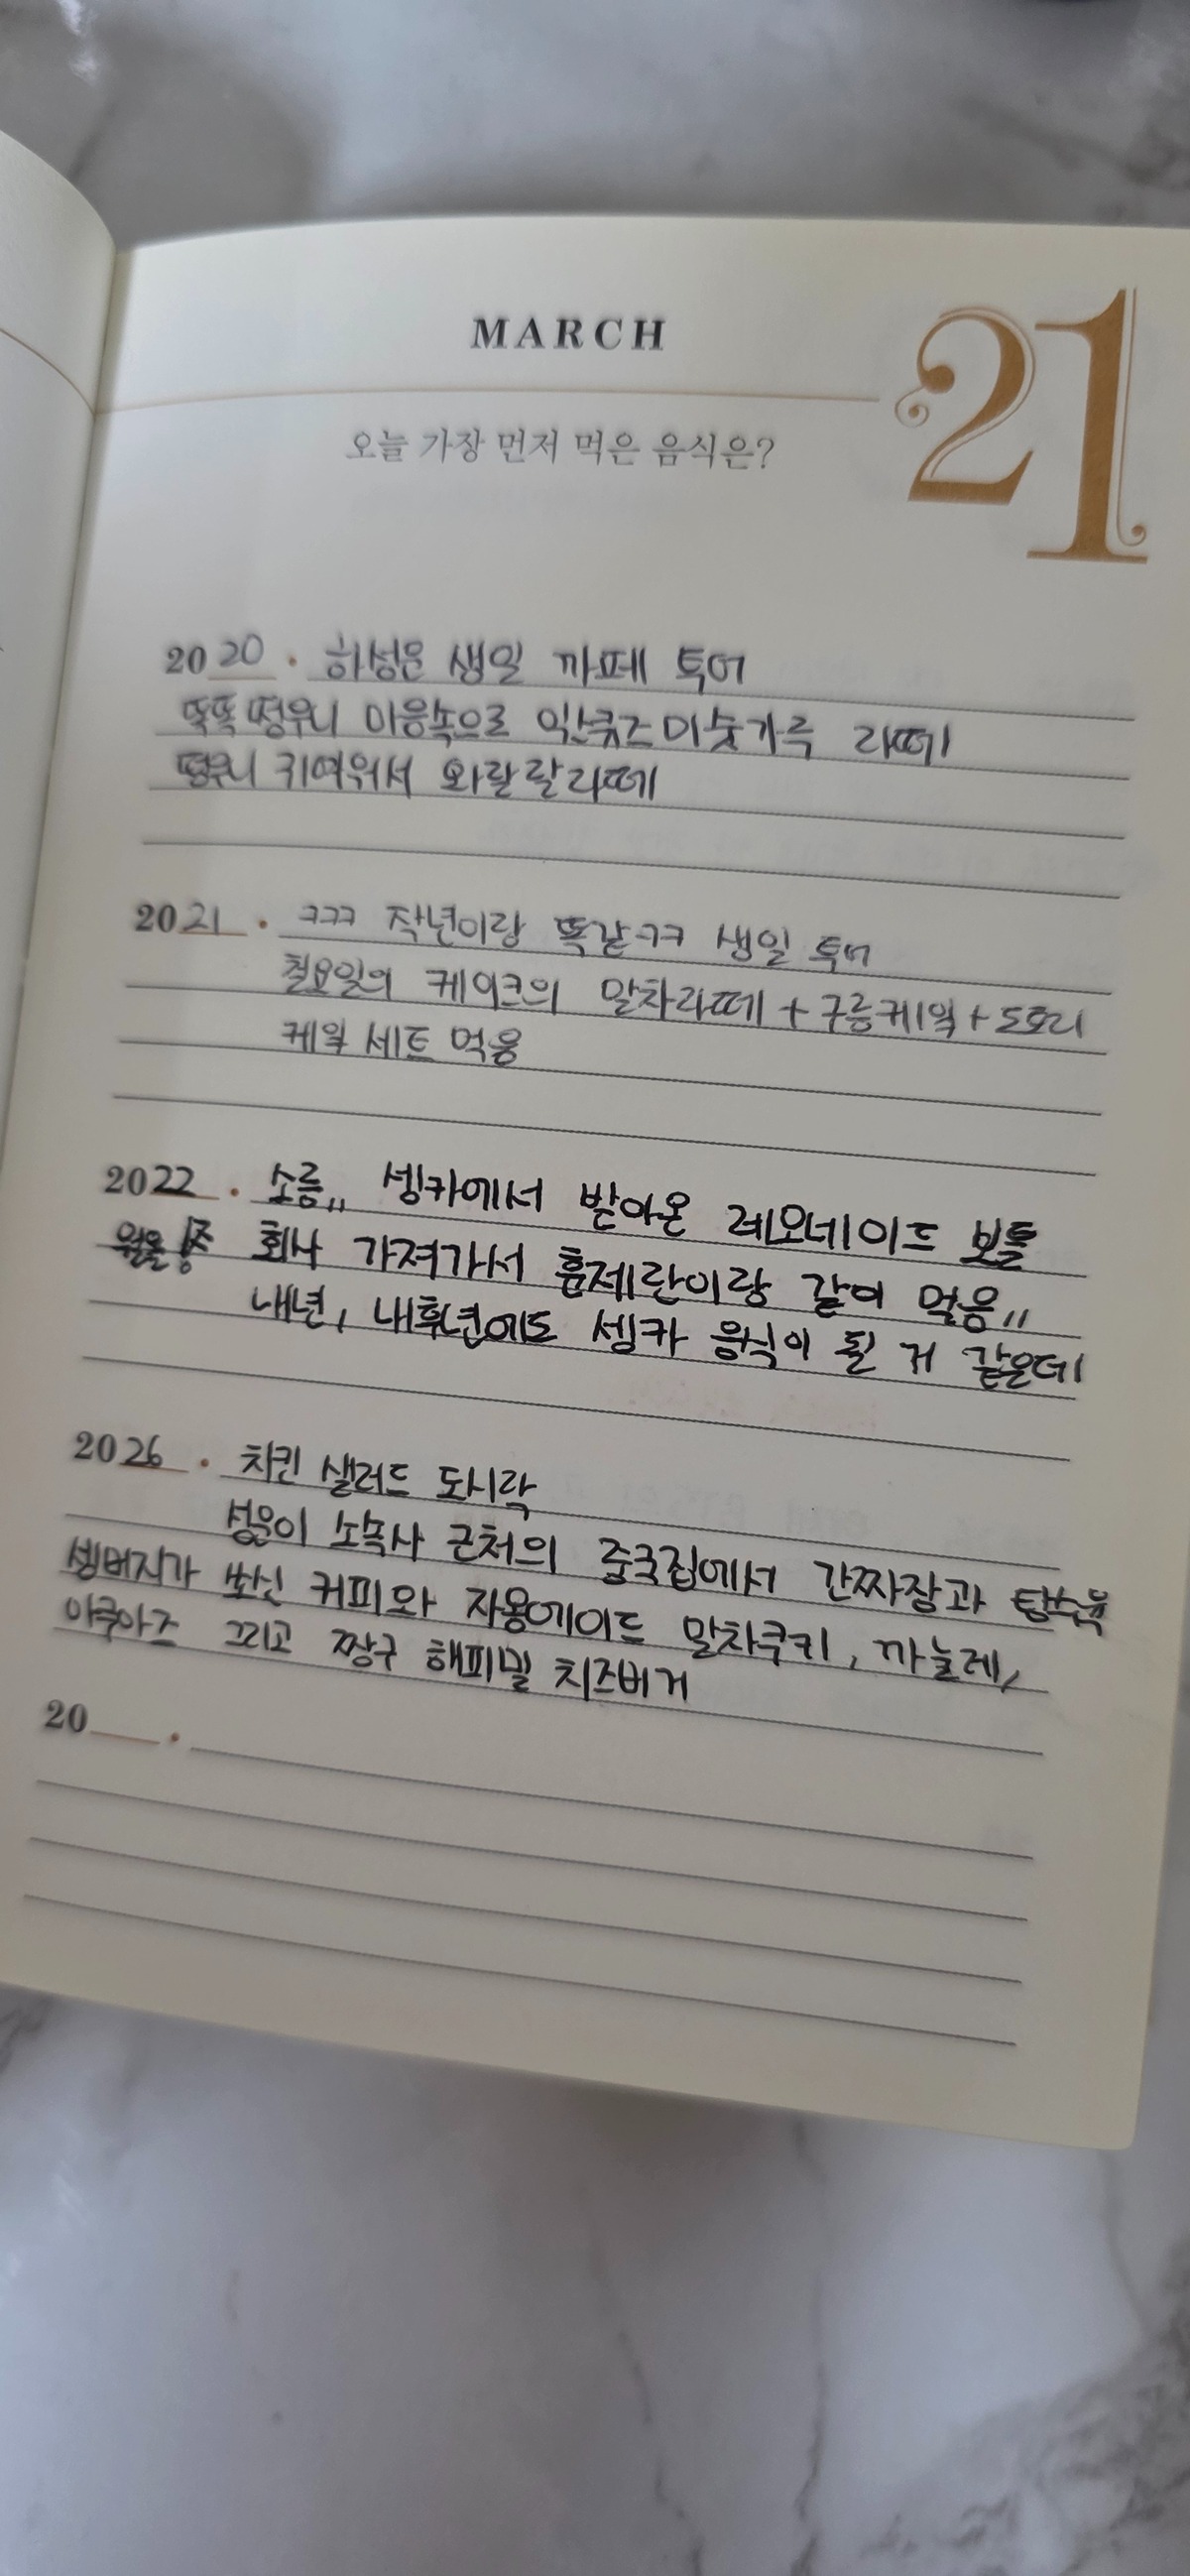 MARCH
21
오늘 가장 먼저 먹은 음식은?
2020 · 하성운 생일 까페 투어
똑똑 떵우니 마음속으로 미숫가루 라떼
떵우니 귀여워서 와랄랄라떼
2021 · ㅋㅋㅋ 작년이랑 똑같ㅋㅋ 생일 투어
철요일의 케이크의 말차라떼 + 구름케잌 + 도토리
케잌 세트 먹음
2022 · 소름,, 셍카에서 받아온 레모네이드 보틀
월욜 회사 가져가서 훈제란이랑 같이 먹음,,
내년, 내후년에도 셍카 음식이 될 거 같은데
2026 · 치킨 샐러드 도시락
성운이 소속사 근처의 중국집에서 간짜장과 탕수육
쎙버지가 쏘신 커피와 자몽에이드 말차쿠키, 까눌레,
야쿠아즈 그리고 짱구 해피밀 치즈버거
20 ·